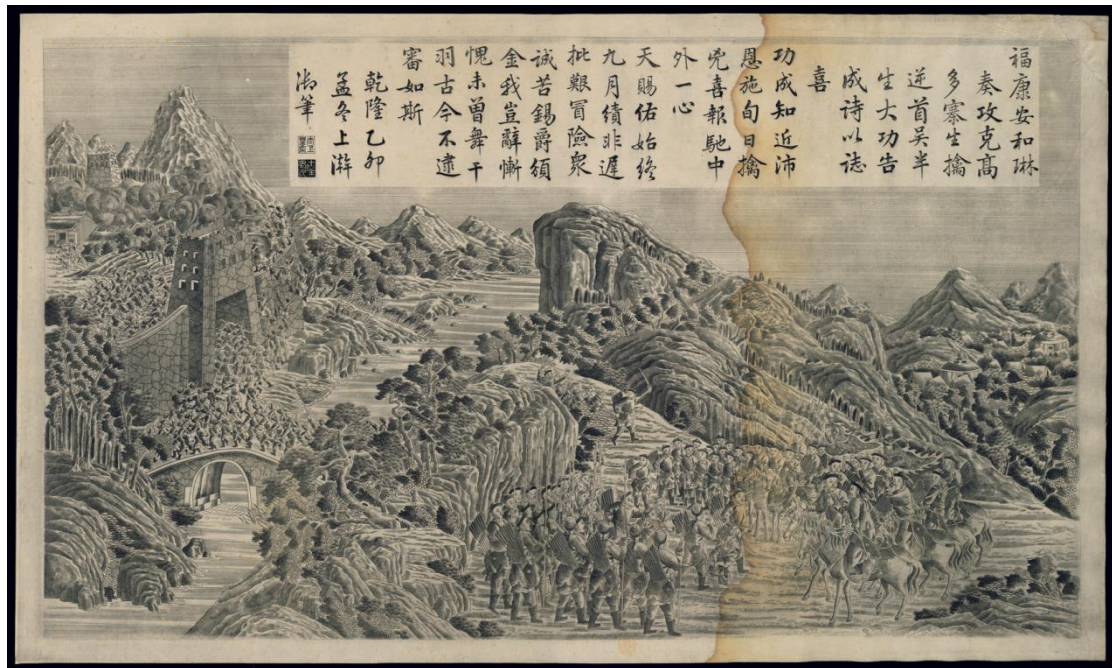 福康安和琳
奏攻克高
多寨生擒
逆首吳半
生大功告
成诗以誌
喜
功成知近沛
恩施旬日擒
兇喜報馳中
外一心
天賜佑始終
九月績非遲
批艱冒險衆
誠苦錫爵頒
金我豈辭慚
愧未曾舞干
羽古今不逮
審如斯
乾隆乙卯
孟冬上澣
御筆